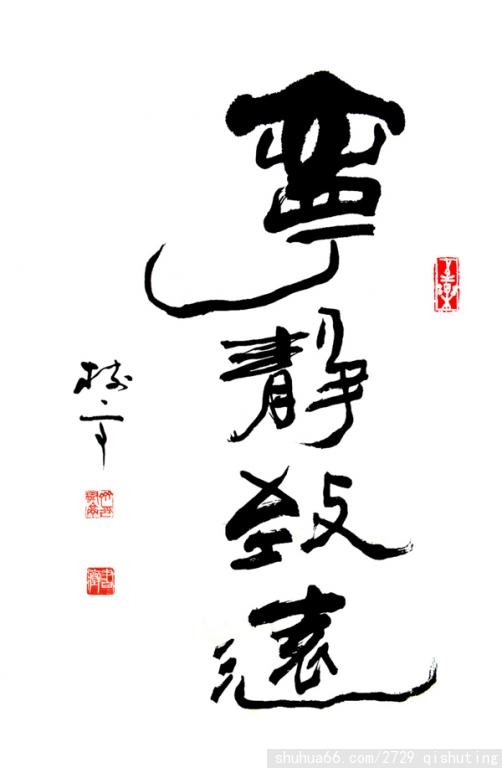 寧靜致遠
shuhua66.com/2729 qishuting